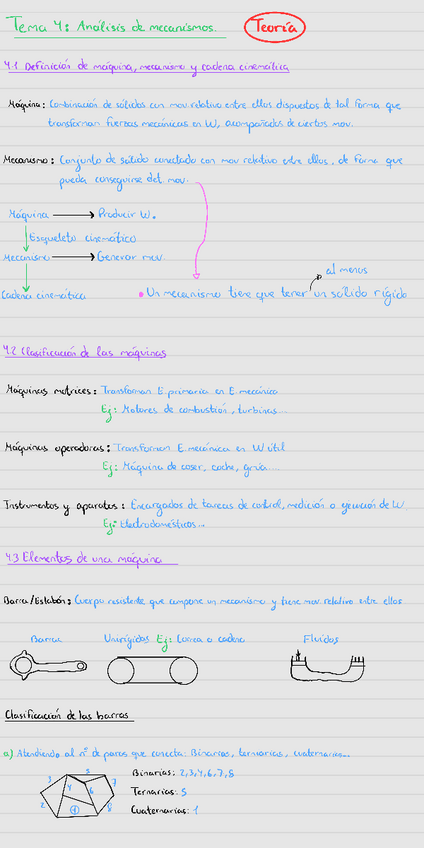 Tema 4: Análisis de mecanismos. Teoría
4.1 Definición de máquina, mecanismo y cadena cinemática
Máquina: Combinación de sólidos con mov relativo entre ellos dispuestos de tal forma que
transforman fuerzas mecánicas en W, acompañados de ciertos mov.
Mecanismo: Conjunto de sólido conectado con mov relativo entre ellos, de forma que
pueda conseguirse det. mov.
Máquina → Producir W.
Esqueleto cinemático
Mecanismo → Generar mov.
al menos
Cadena cinemática
Un mecanismo tiene que tener un sólido rígido
4.2 Clasificación de las máquinas
Máquinas motrices: Transforman E.primaria en E.mecánica
Ej: Motores de combustión, turbinas...
Máquinas operadoras: Transforman E.mecánica en W útil
Ej: Máquina de coser, coche, grúa....
Instrumentos y aparatos: Encargados de tareas de control, medición o ejecución de W.
Ej: Electrodomésticos...
4.3 Elementos de una máquina
Barra/Eslabón: Cuerpo resistente que compone un mecanismo y tiene mov. relativo entre ellos
Barra Unirígidos Ej: Correa o cadena Fluidos
Clasificación de las barras
a) Atendiendo al nº de pares que conecta: Binarias, ternarias, cuaternarias...
Binarias: 2,3,4,6,7,8
Ternarias: 5
Cuaternarias: 1
3 5 7
4 6
2 1 8